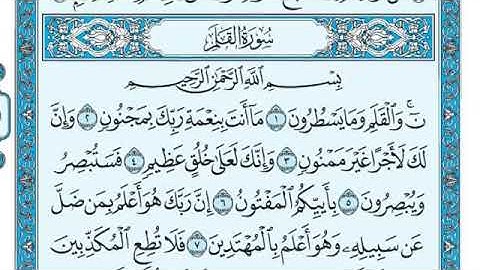 سُورَةُ القَلَمِ
بِسْمِ ٱللَّهِ ٱلرَّحْمَٰنِ ٱلرَّحِيمِ
نٓ ۚ وَٱلْقَلَمِ وَمَا يَسْطُرُونَ ١ مَآ أَنتَ بِنِعْمَةِ رَبِّكَ بِمَجْنُونٍ ٢ وَإِنَّ
لَكَ لَأَجْرًا غَيْرَ مَمْنُونٍ ٣ وَإِنَّكَ لَعَلَىٰ خُلُقٍ عَظِيمٍ ٤ فَسَتُبْصِرُ
وَيُبْصِرُونَ ٥ بِأَييِّكُمُ ٱلْمَفْتُونُ ٦ إِنَّ رَبَّكَ هُوَ أَعْلَمُ بِمَن ضَلَّ
عَن سَبِيلِهِۦ وَهُوَ أَعْلَمُ بِٱلْمُهْتَدِينَ ٧ فَلَا تُطِعِ ٱلْمُكَذِّبِينَ